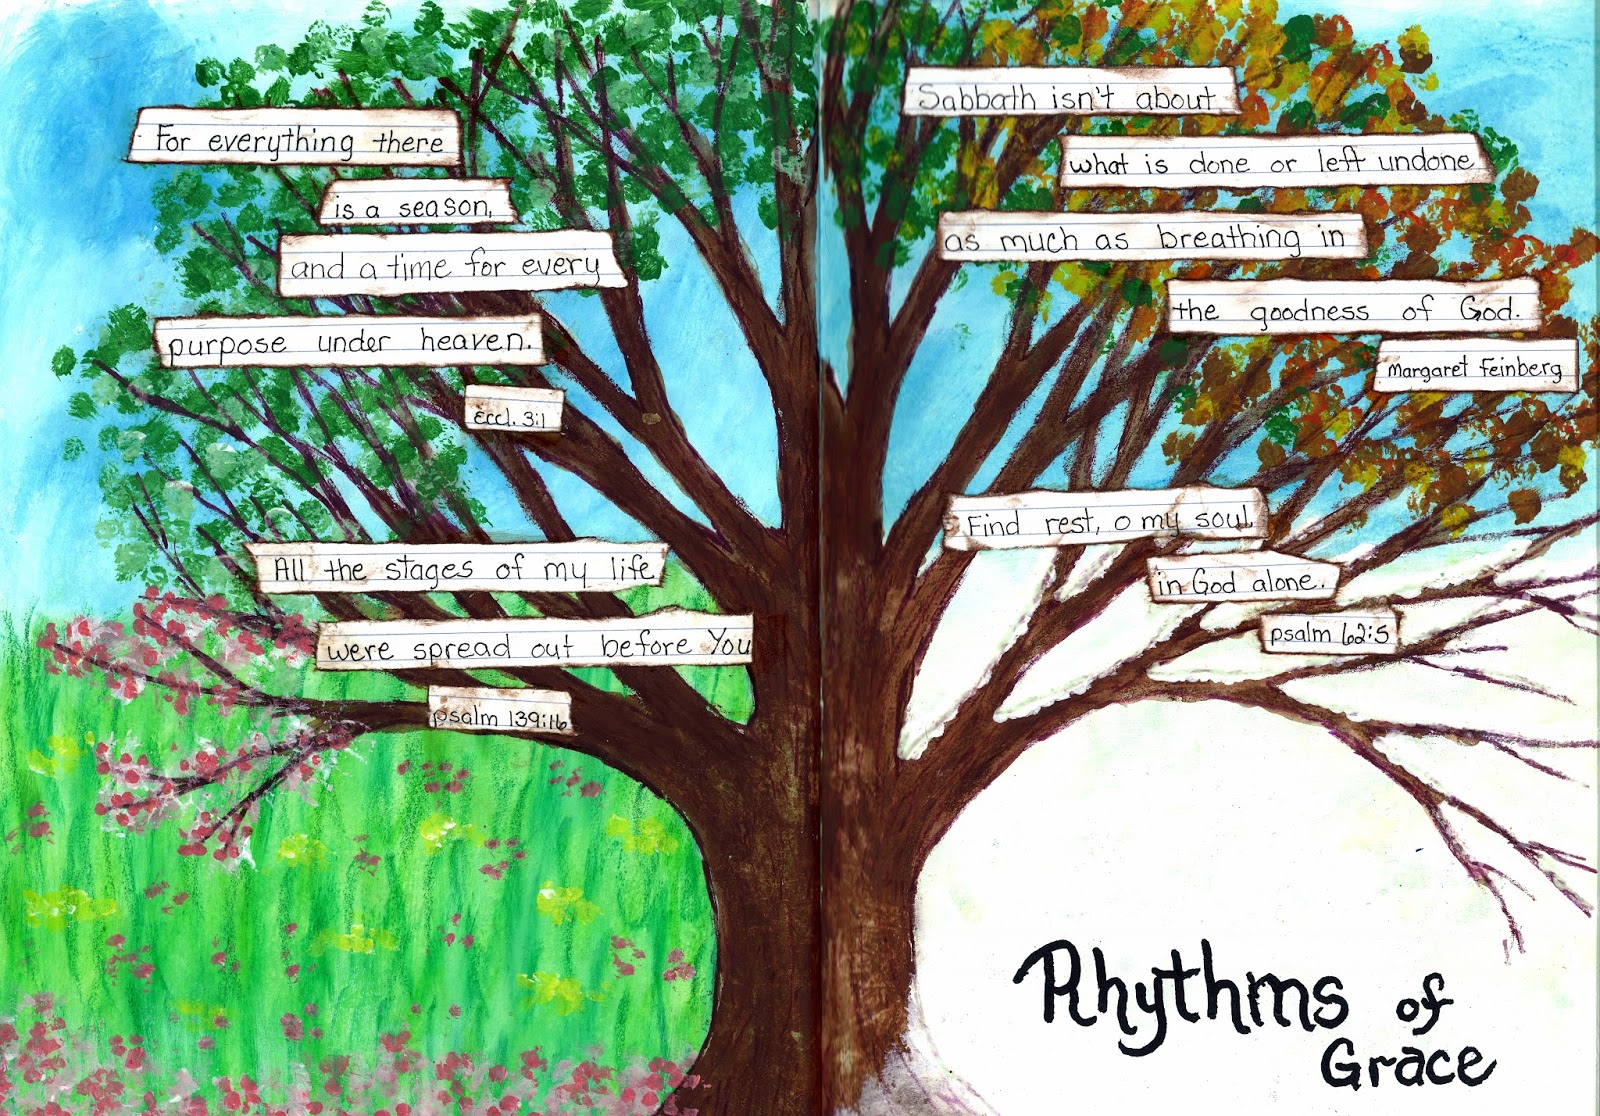 For everything there
is a season,
and a time for every
purpose under heaven.
Eccl. 3:1
All the stages of my life
were spread out before You
psalm 139:16
Sabbath isn't about
what is done or left undone
as much as breathing in
the goodness of God.
Margaret Feinberg
Find rest, o my soul
in God alone.
psalm 62:5
Rhythms of
Grace